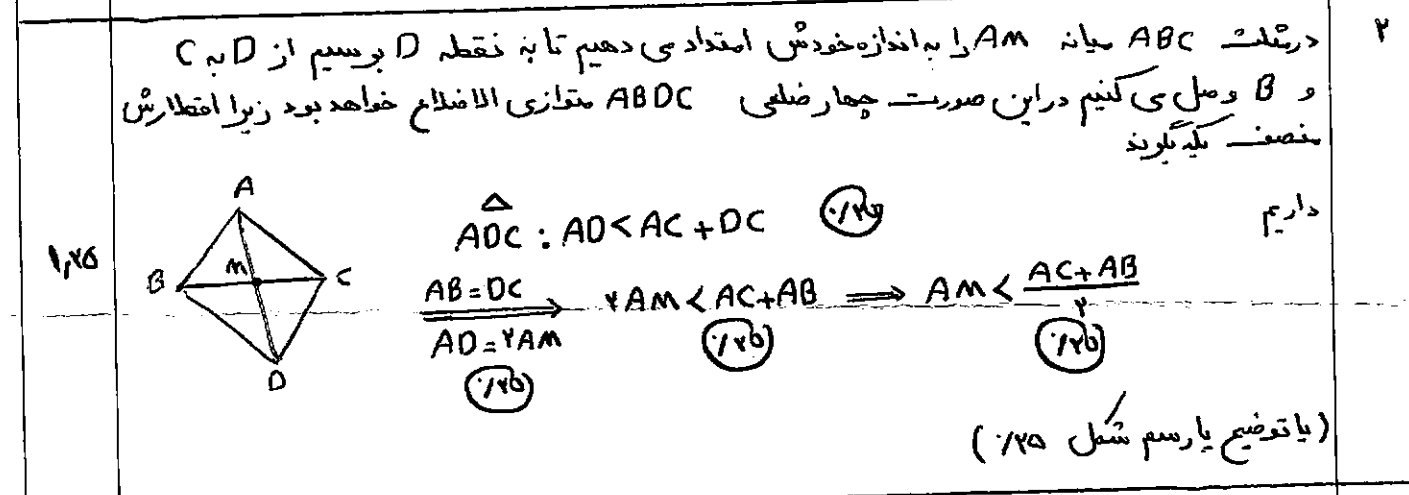 ۲
در مثلث ABC میانه AM را به اندازه خودش امتداد می دهیم تا به نقطه D برسیم از D به C
و B وصل می کنیم در این صورت چهار ضلعی ABDC متوازی الاضلاع خواهد بود زیرا اقطارش
منصف یکدیگرند
داریم
△ADC : AD < AC + DC ۰/۲۵
۱,۲۵
A
B
M
C
D
AB = DC
AD = ۲AM
۰/۲۵
⟹ ۲AM < AC + AB ۰/۲۵
⟹ AM < (AC + AB)/۲ ۰/۲۵
(با توضیح یا رسم شکل ۰/۲۵)